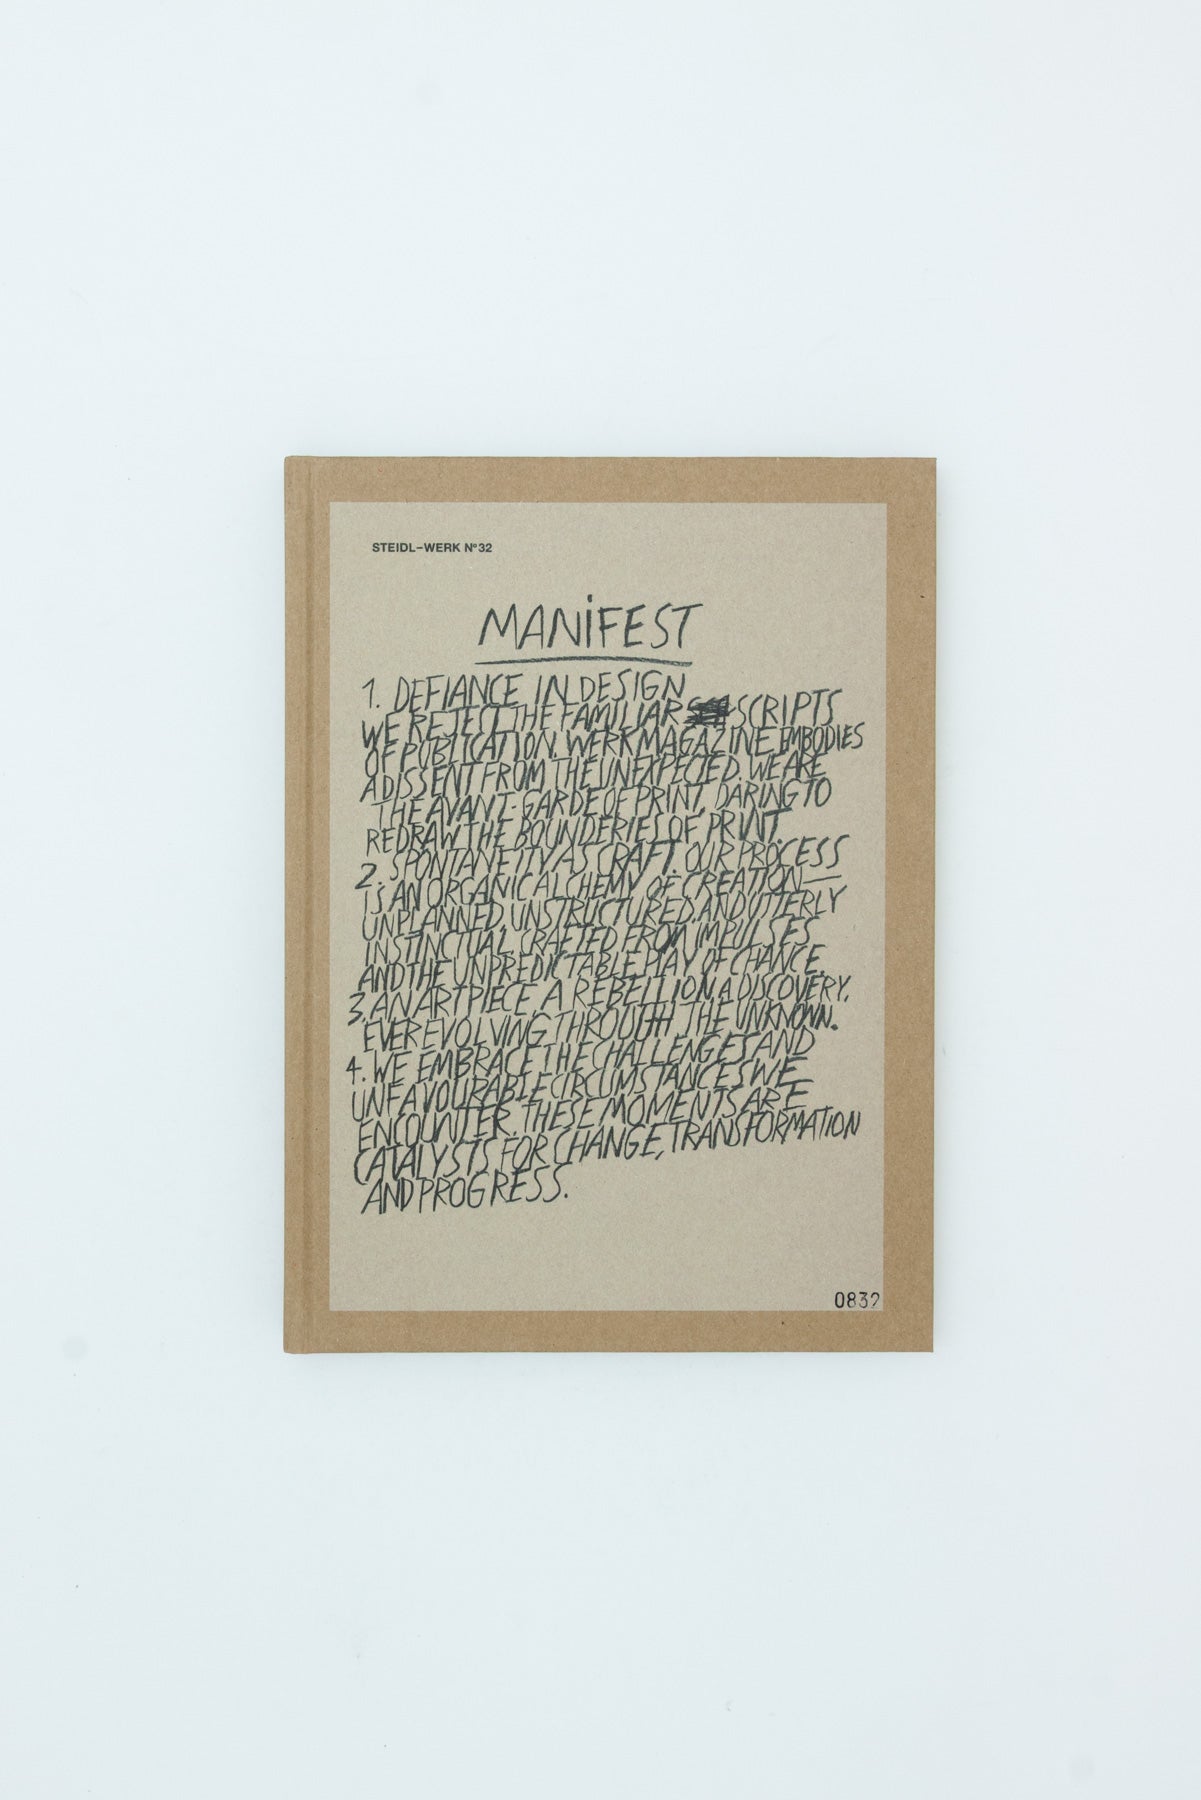 STEIDL–WERK Nº32
MANiFEST
1. DEFIANCE IN DESIGN
WE REJEST THE FAMILIAR SCRIPTS
OF PUBLICATION. WERK MAGAZINE EMBODIES
A DISSENT FROM THE UNEXPECTED. WE ARE
THE AVANT-GARDE OF PRINT, DARING TO
REDRAW THE BOUNDERIES OF PRINT
2. SPONTANEITY AS CRAFT. OUR PROCESS
IS AN ORGANIC ALCHEMY OF CREATION—
UNPLANNED, UNSTRUCTURED, AND UTTERLY
INSTINCTUAL, CRAFTED FROM IMPULSES
AND THE UNPREDICTABLE PLAY OF CHANCE.
3. AN ARTPIECE, A REBELLION, A DISCOVERY,
EVER EVOLVING THROUTH THE UNKNOWN.
4. WE EMBRACE THE CHALLENGES AND
UNFAVOURABLE CIRCUMSTANCES WE
ENCOUNTER. THESE MOMENTS ARE
CATALYSTS FOR CHANGE, TRANSFORMATION
AND PROGRESS.
0832